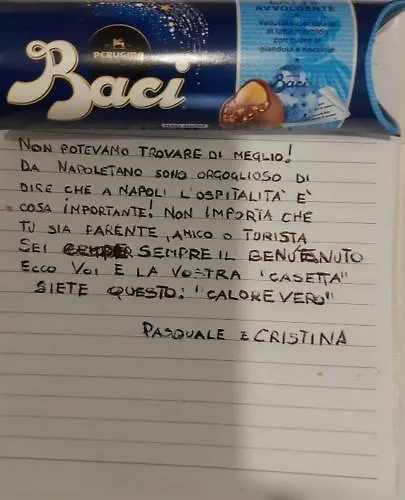 AVVOLGENTE
Vellutato cioccolato
al latte morbido
con cuore di
gianduia e nocciole
PERUGINA
Baci
Baci
NON POTEVAMO TROVARE DI MEGLIO!
DA NAPOLETANO SONO ORGOGLIOSO DI
DIRE CHE A NAPOLI L'OSPITALITÀ È
COSA IMPORTANTE! NON IMPORTA CHE
TU SIA PARENTE, AMICO O TURISTA
SEI SEMPRE IL BENVENUTO
ECCO VOI E LA VOSTRA "CASETTA"
SIETE QUESTO: "CALORE VERO"
PASQUALE E CRISTINA